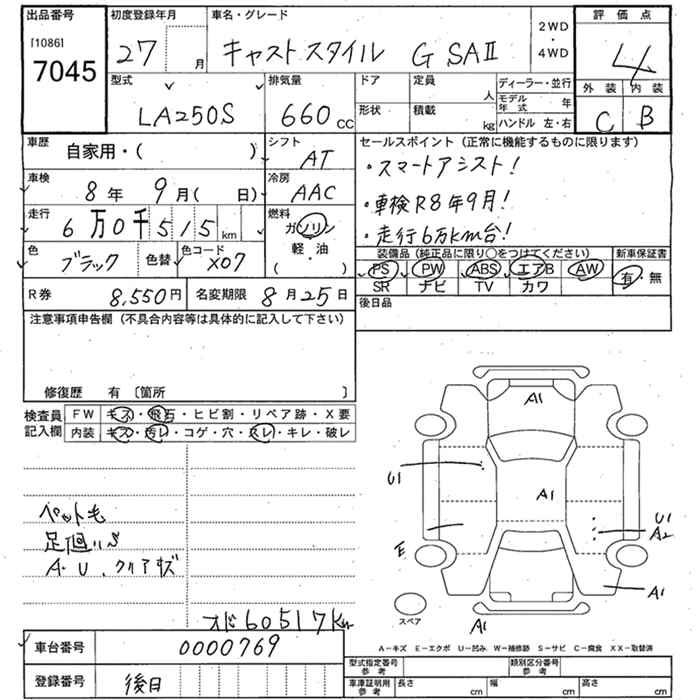 出品番号
[1086]
7045
初度登録年月
27 月
車名・グレード
キャスト スタイル G SAⅡ
2WD
・
4WD
評価点
4
外装 内装
C B
型式
LA250S
排気量
660 cc
ドア
形状
定員
人
積載
kg
ディーラー・並行
モデル年式 年
ハンドル 左・右
車歴
自家用・( )
シフト
AT
車検
8年 9月( 日)
冷房
AAC
走行
6万0千515 km
燃料
ガソリン
軽・油
( ・ )
色
ブラック
色替
色コード
X07
R券 8,550円
名変期限 8月25日
セールスポイント(正常に機能するものに限ります)
・スマートアシスト!
・車検R8年9月!
・走行6万km台!
装備品(純正品に限り○をつけてください)
PS PW ABS エアB AW
SR ナビ TV カワ
新車保証書
有・無
後日品
注意事項申告欄(不具合内容等は具体的に記入して下さい)
修復歴 有〔箇所 〕
検査員記入欄
FW キズ・飛石・ヒビ割・リペア跡・X要
内装 キズ・汚レ・コゲ・穴・スレ・キレ・破レ
足廻り
A.U.クリアキズ
オド60517km
A1
U1
A1
U1
A2
E
A1
A1
スペア
A-キズ E-エクボ U-凹み W-補修跡 S-サビ C-腐食 XX-取替済
車台番号 0000769
登録番号 後日
型式指定番号 参考
類別区分番号 参考
車庫証明用 参考
長さ cm
幅 cm
高さ cm